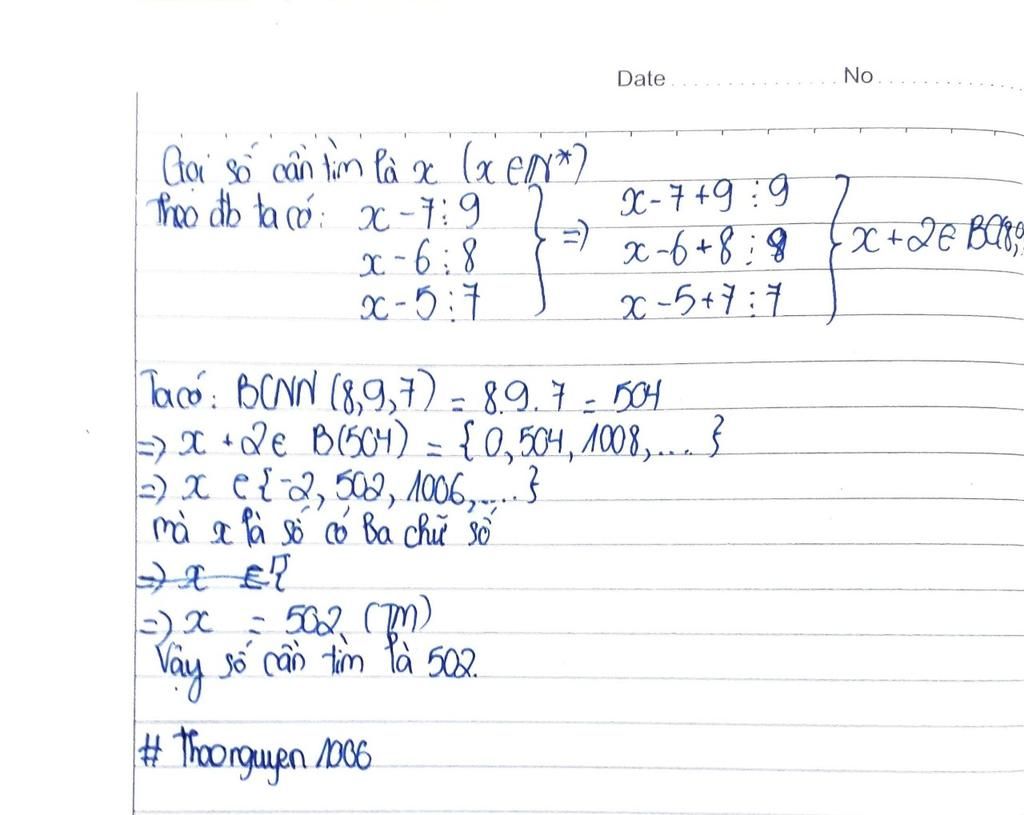 Date No
Gọi số cần tìm là x (x ∈ N*)
Theo đb ta có: x - 7 ⋮ 9 } => x - 7 + 9 ⋮ 9 } x + 2 ∈ BC(8,9
x - 6 ⋮ 8 x - 6 + 8 ⋮ 8
x - 5 ⋮ 7 x - 5 + 7 ⋮ 7
Ta có: BCNN (8,9,7) = 8.9.7 = 504
=> x + 2 ∈ B(504) = {0, 504, 1008, .... }
=> x ∈ {-2, 502, 1006, .... }
mà x là số có ba chữ số
=> x ∈ {
=> x = 502 (TM)
Vậy số cần tìm là 502.
# Thaonguyen 1006